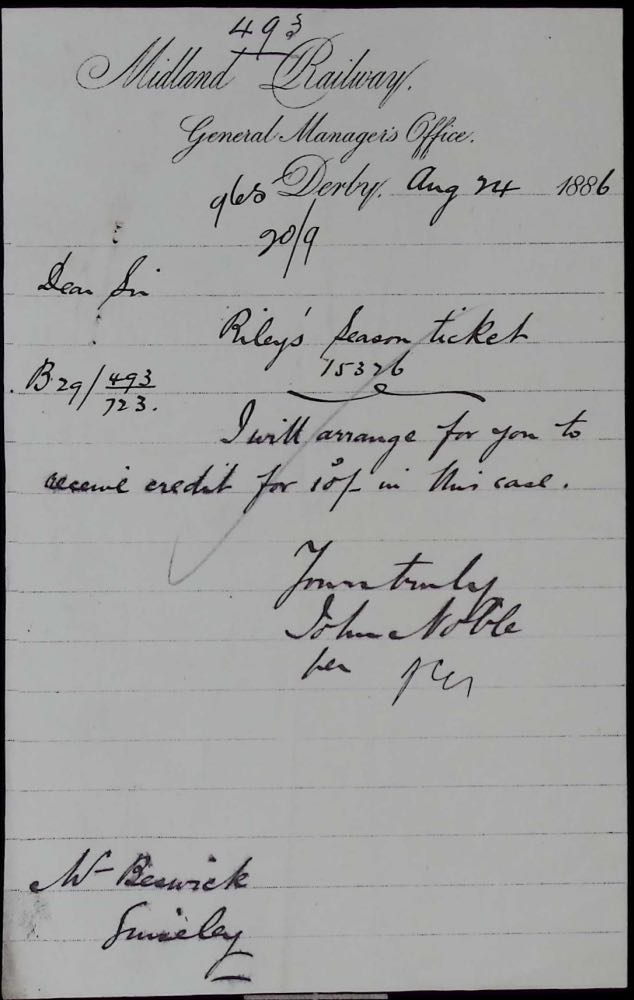 493
Midland Railway.
General Manager's Office.
Derby. Aug 24 1886
20/9
Dear Sir
Riley's Season ticket
15326
B29/493
723.
I will arrange for you to
receive credit for 10/- in this case.
Yours truly
John Noble
per
Mr Beswick